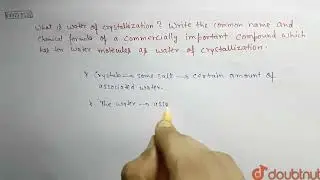 What is water of crystallization? Write the common name and
chemical formula of a commercially important compound which
has ten water molecules as water of crystallization.
* Crystals → some salt → certain amount of
associated water.
* The water → asso
doubtnut